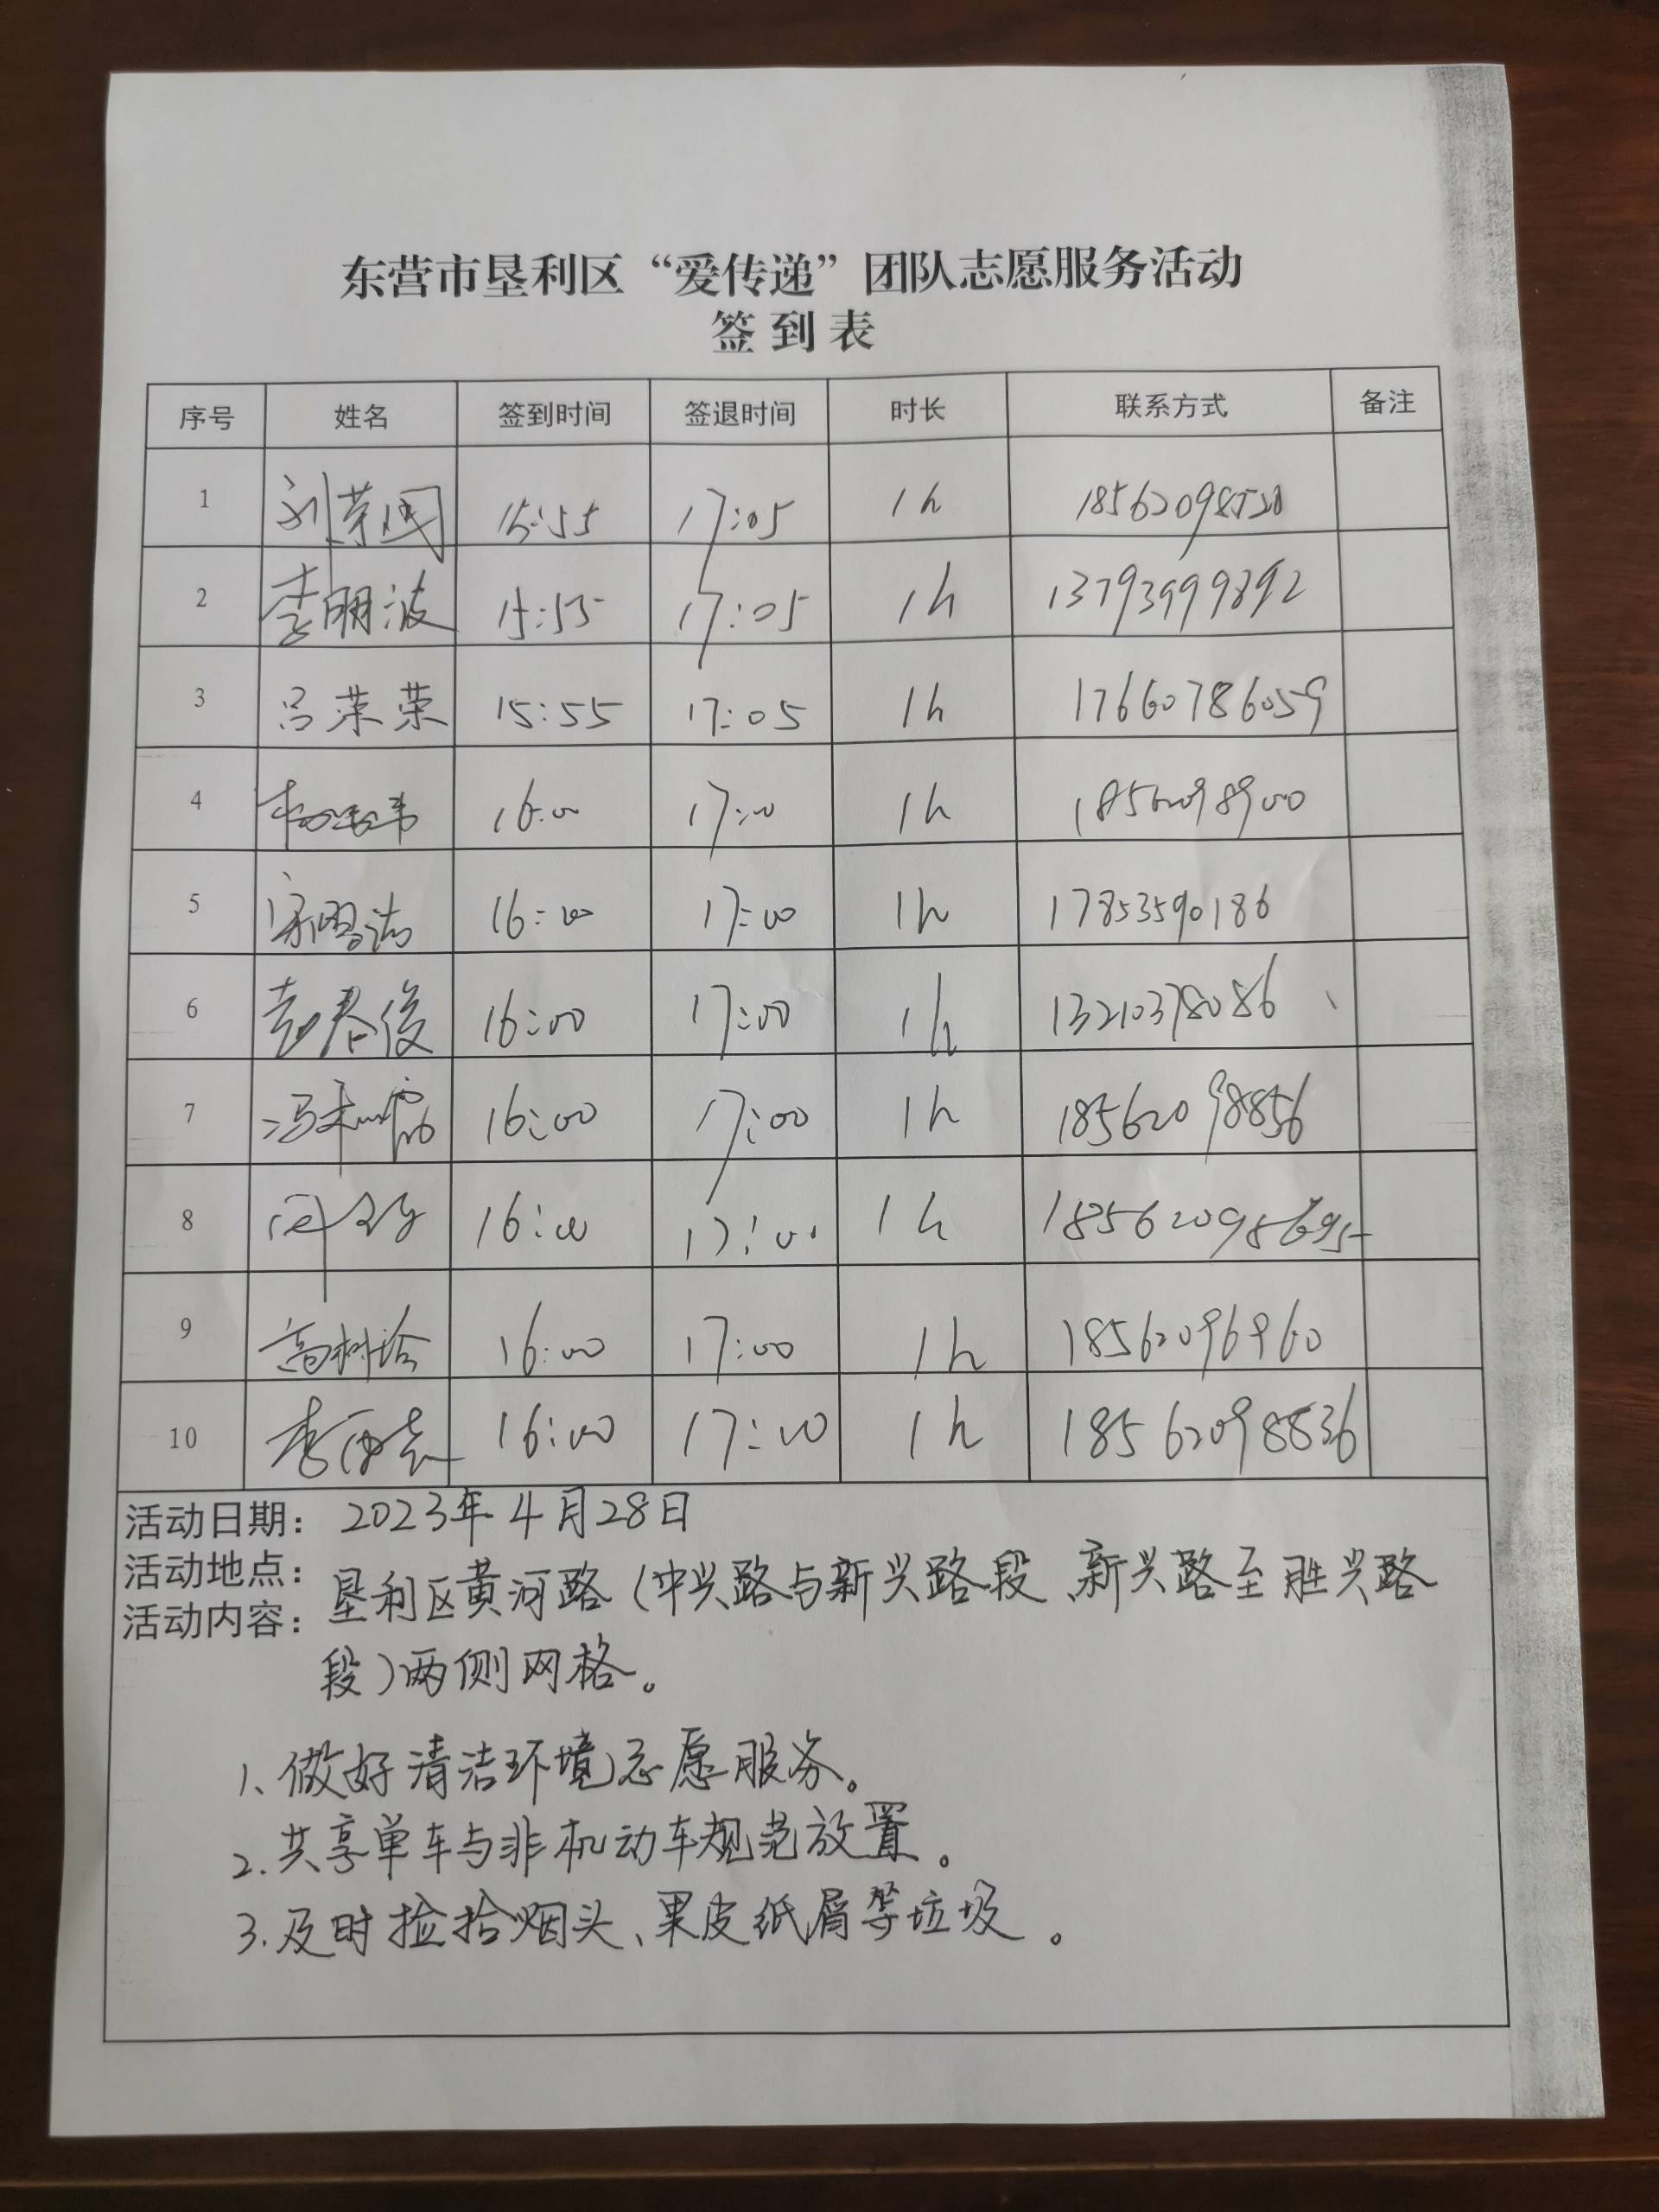 东营市垦利区“爱传递”团队志愿服务活动
签到表
序号 姓名 签到时间 签退时间 时长 联系方式 备注
1 刘荣国 15:55 17:05 1h 18562098520
2 李明波 15:55 17:05 1h 13793999892
3 吕荣荣 15:55 17:05 1h 17660786059
4 16:00 17:00 1h 18562098900
5 16:00 17:00 1h 17853590186
6 16:00 17:00 1h 13210378086
7 16:00 17:00 1h 18562098856
8 16:00 17:00 1h 18562098695
9 16:00 17:00 1h 18562096960
10 李 16:00 17:00 1h 18562098836
活动日期： 2023年4月28日
活动地点： 垦利区黄河路（中兴路与新兴路段、新兴路至胜兴路
段）两侧网格。
活动内容：
1、做好清洁环境志愿服务。
2.共享单车与非机动车规范放置。
3.及时捡拾烟头、果皮纸屑等垃圾。